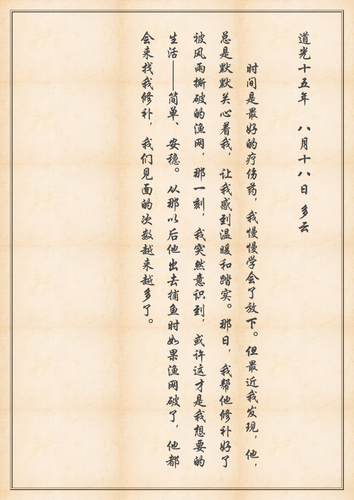 道光十五年 八月十八日 多云
时间是最好的疗伤药，我慢慢学会了放下。但最近我发现，他，
总是默默关心着我，让我感到温暖和踏实。那日，我帮他修补好了
被风雨撕破的渔网，那一刻，我突然意识到，或许这才是我想要的
生活——简单、安稳。从那以后他出去捕鱼时如果渔网破了，他都
会来找我修补，我们见面的次数越来越多了。